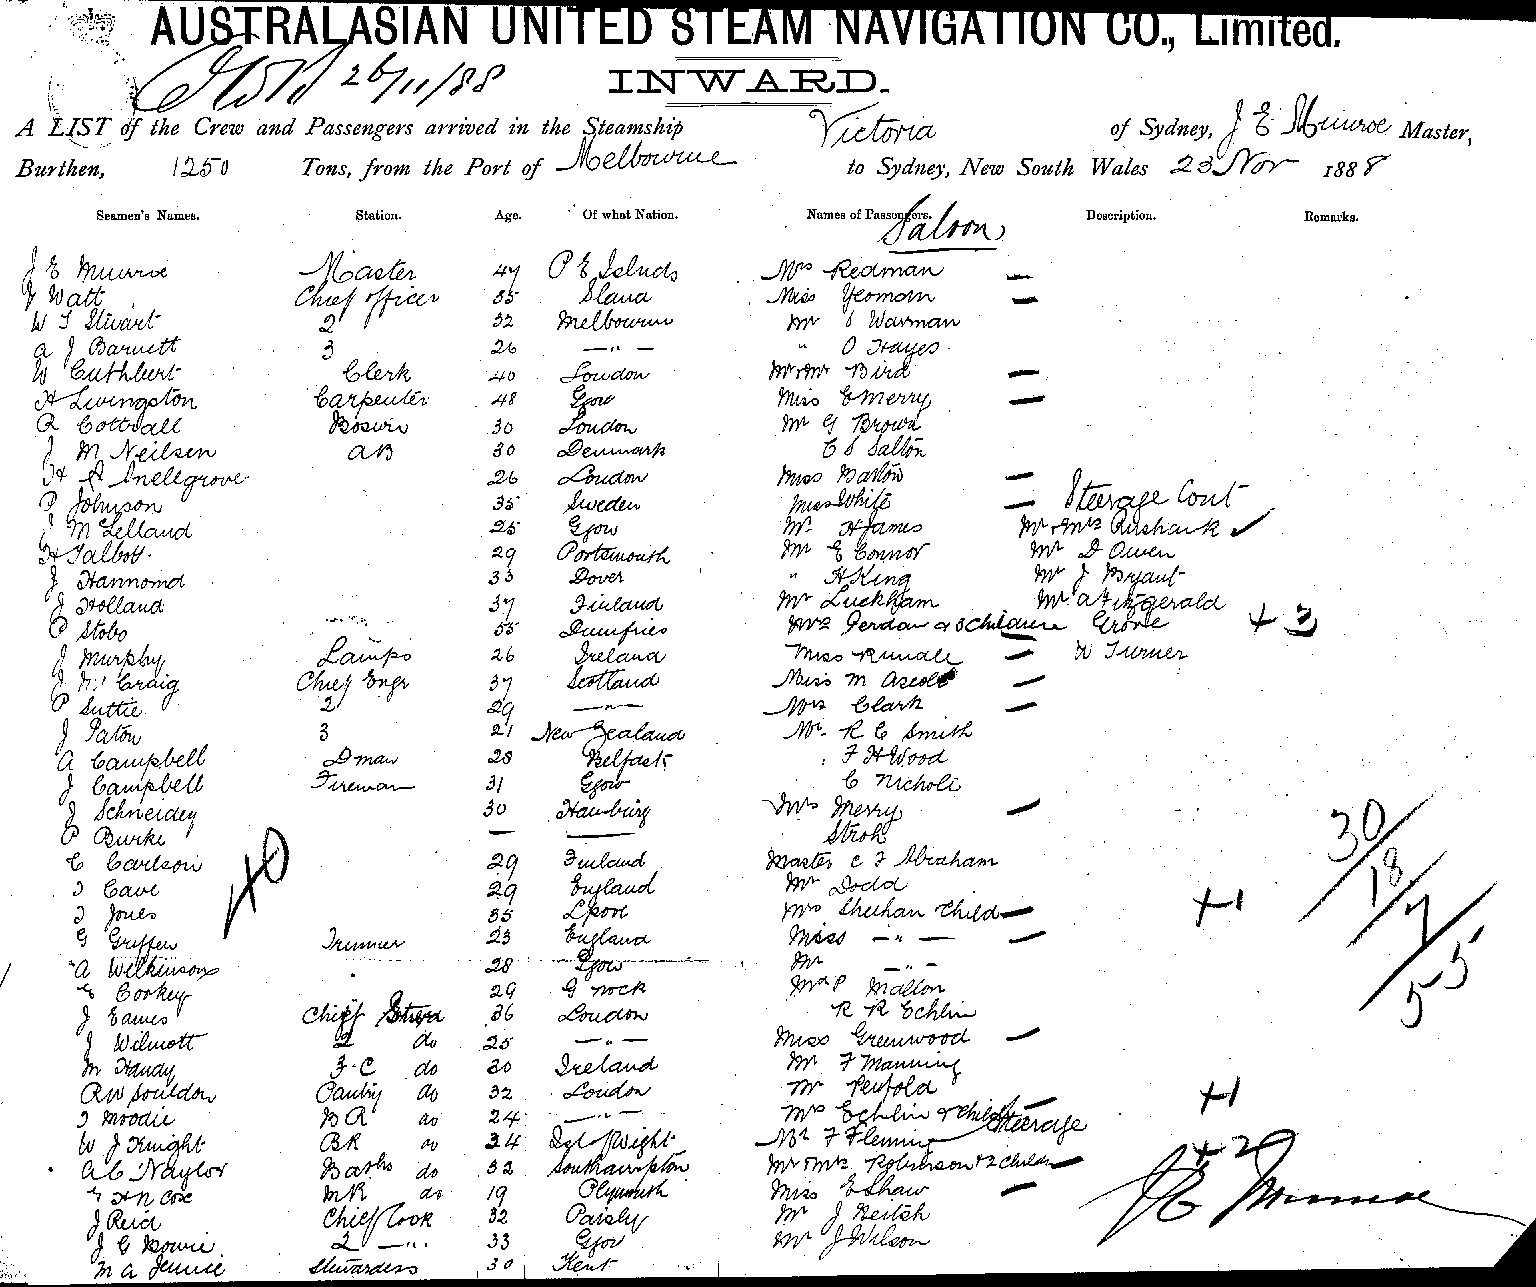 AUSTRALASIAN UNITED STEAM NAVIGATION CO., Limited.
26/11/88
INWARD.
A LIST of the Crew and Passengers arrived in the Steamship Victoria of Sydney, J E Munroe Master,
Burthen, 1250 Tons, from the Port of Melbourne to Sydney, New South Wales 23 Nov 1888
Seamen's Names. Station. Age. Of what Nation. Names of Passengers. Description. Remarks.
Saloon
J E Munroe Master 47 P E Islnds Mrs Redman —
J Watt Chief officer 35 Miss Yeomom —
W J Stuart 2 32 Melbourne Mr S Warman
A J Barnett 3 26 — " — " O Hayes
W Cuthbert Clerk 40 London Mr & Mrs Bird —
H Livingston Carpenter 48 Ggow Miss E Merry —
R Cottrall Boswn 30 London Mr G Brown
J M Neilsen AB 30 Denmark C S Salton
H A Snellgrove 26 London Miss Barlow —
P Johnson 35 Sweden Miss White — Steerage Cont
J McLelland 25 Ggow Mr H James Mr & Mrs ✓
H Talbot 29 Portsmouth Mr E Connor Mr D Owen
J Hannomd 33 Dover " H King Mr J Bryant
J Holland 37 Finland Mr Luckham Mr A Fitzgerald
P Stobo 55 Dumfries Mrs & 3 Children Grove + 3
J Murphy Lamps 26 Ireland Miss Rundle — W Turner
J McCraig Chief Engr 37 Scotland Miss M —
P Suttie 2 29 — " — Mrs Clark —
J Paton 3 21 New Zealand Mr R C Smith
A Campbell Dman 28 Belfast F H Wood
J Campbell Fireman 31 Ggow C Nicholi
J Schneidey 30 Hamburg Mrs Merry —
P Burke — — Stroh
C Carlson 29 Finland Master C F Abraham
40
30/18/7/55
J Cave 29 England Mr Dodd
J Jones 35 Lpool Mrs Sheehan & Child — +1
G Griffen Trimmer 23 England Miss — " — —
A Wilkinson 28 Ggow Mr — " —
G Cookey 29 G nock Mr P Mallon
J Eames Chief Stwd 36 London R R Echlin
J Wilmott 2 do 25 — " — Miss Greenwood —
M Handy 3.C do 30 Ireland Mr F Manning
R W Souldon Pantry do 32 London Mr Penfold
J Moodie BR do 24 — " — Mrs Echlin & Child — +1
Steerage
W J Knight BR do 34 Isl of Wight Mr F Fleming
A C Naylor Baths do 32 Southampton Mr & Mrs Robinson & 2 Childn — +2
G H N Cox MR do 19 Plymouth Miss E Shaw —
J E Munroe
J Reid Chief Cook 32 Paisly Mr J Keitch
J G Bowie 2 — " 33 Ggow Mr J Wilson
M A Stewardess 30 Kent